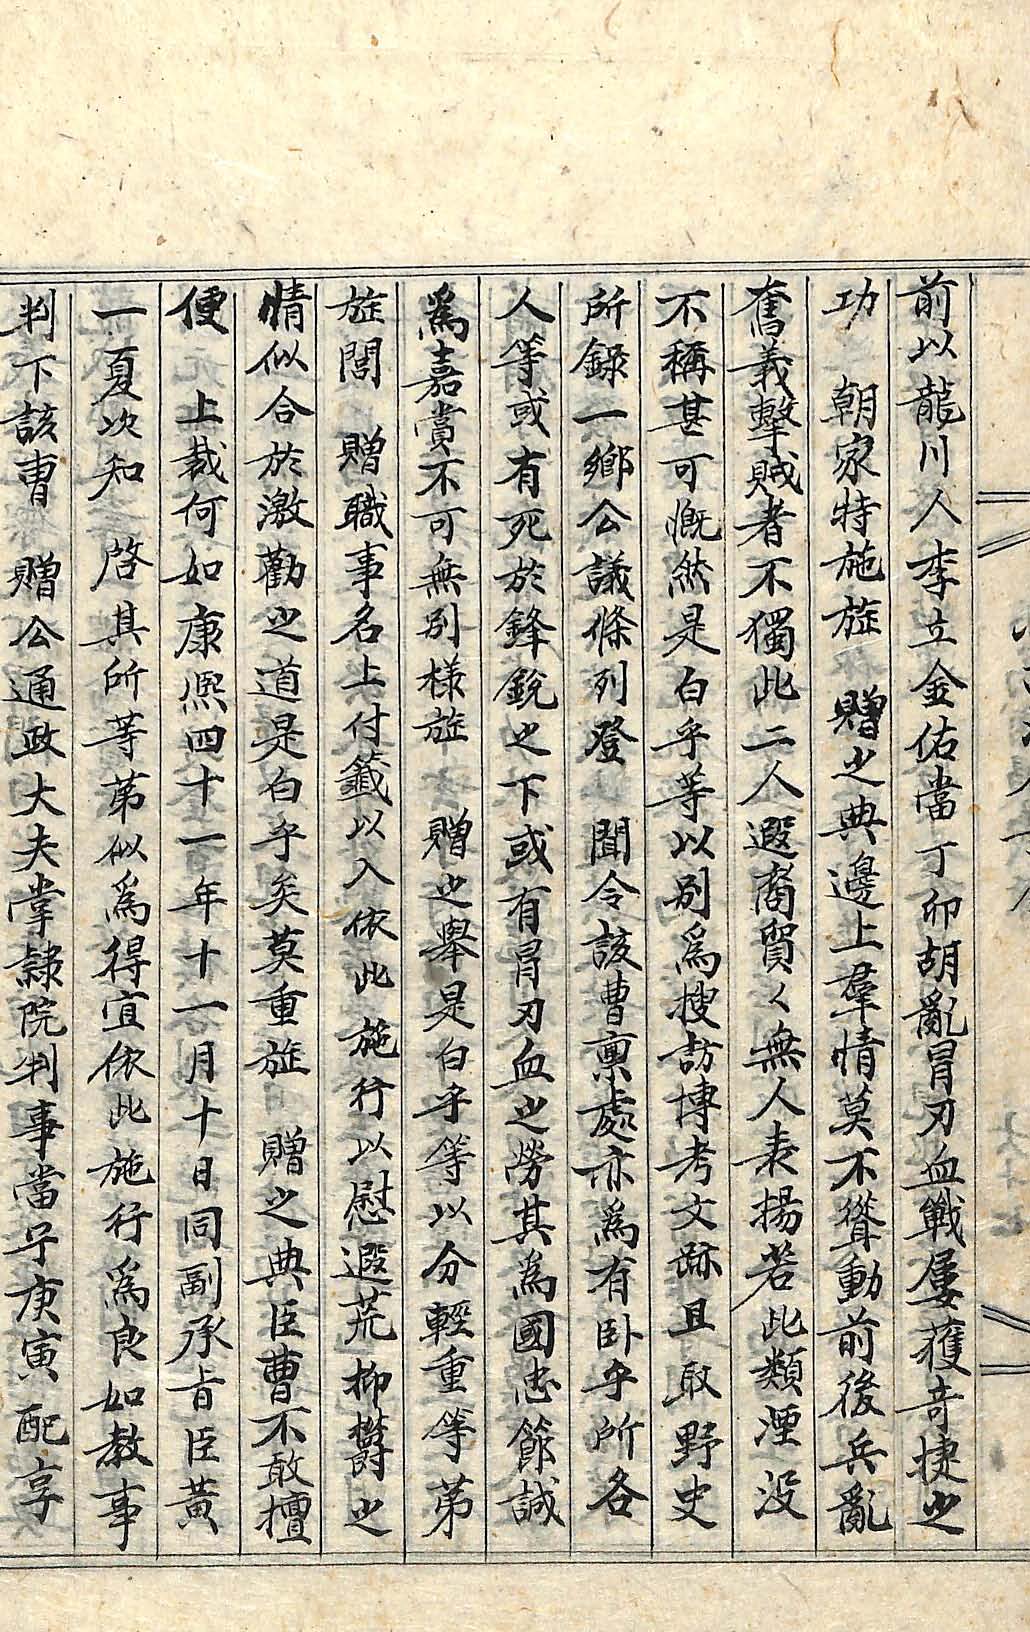 前以龍川人李立金佑當丁卯胡亂冒刃血戰屢獲奇捷之
功 朝家特施旌 贈之典邊上羣情莫不聳動前後兵亂
奮義擊賊者不獨此二人遐裔貿〻無人表揚若此類湮没
不稱甚可慨然是白乎等以別爲搜訪博考文跡且取野史
所錄一鄉公議條列登 聞令該曹稟處亦爲有卧乎所各
人等或有死於鋒銳之下或有冒刃血之勞其爲國忠節誠
爲嘉賞不可無別樣旌 贈之舉是白乎等以分輕重等第
旌閭 贈職事名上付籤以入依此施行以慰遐荒抑鬱之
情似合於激勸之道是白乎矣莫重旌 贈之典臣曹不敢擅
便 上裁何如康熙四十一年十一月十日同副承旨臣黃
一夏次知 啓其所等第似爲得宜依此施行爲良如教事
判下該曺 贈公通政大夫掌隸院判事當宁庚寅 配享